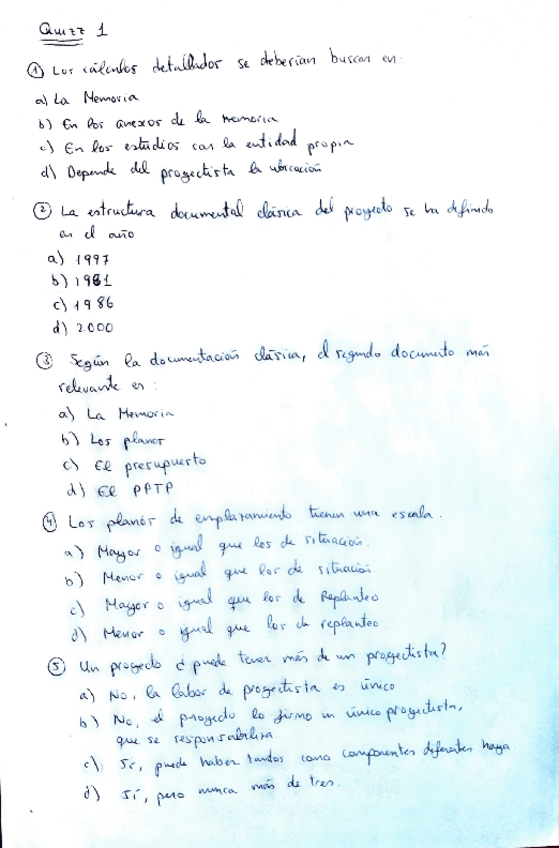 Quizz 1
① Los cálculos detallados se deberían buscar en:
a) La Memoria
b) En los anexos de la memoria
c) En los estudios con la entidad propia
d) Depende del proyectista la ubicación
② La estructura documental clásica del proyecto se ha definido
en el año
a) 1997
b) 1981
c) 1986
d) 2000
③ Según la documentación clásica, el segundo documento más
relevante es:
a) La Memoria
b) Los planos
c) El presupuesto
d) El PPTP
④ Los planos de emplazamiento tienen una escala.
a) Mayor o igual que los de situación.
b) Menor o igual que los de situación
c) Mayor o igual que los de Replanteo
d) Menor o igual que los de replanteo
⑤ Un proyecto ¿ puede tener más de un proyectista?
a) No, la labor de proyectista es único
b) No, el proyecto lo firma un único proyectista,
que se responsabiliza
c) Sí, puede haber tantos como componentes diferentes haya
d) Sí, pero nunca más de tres.